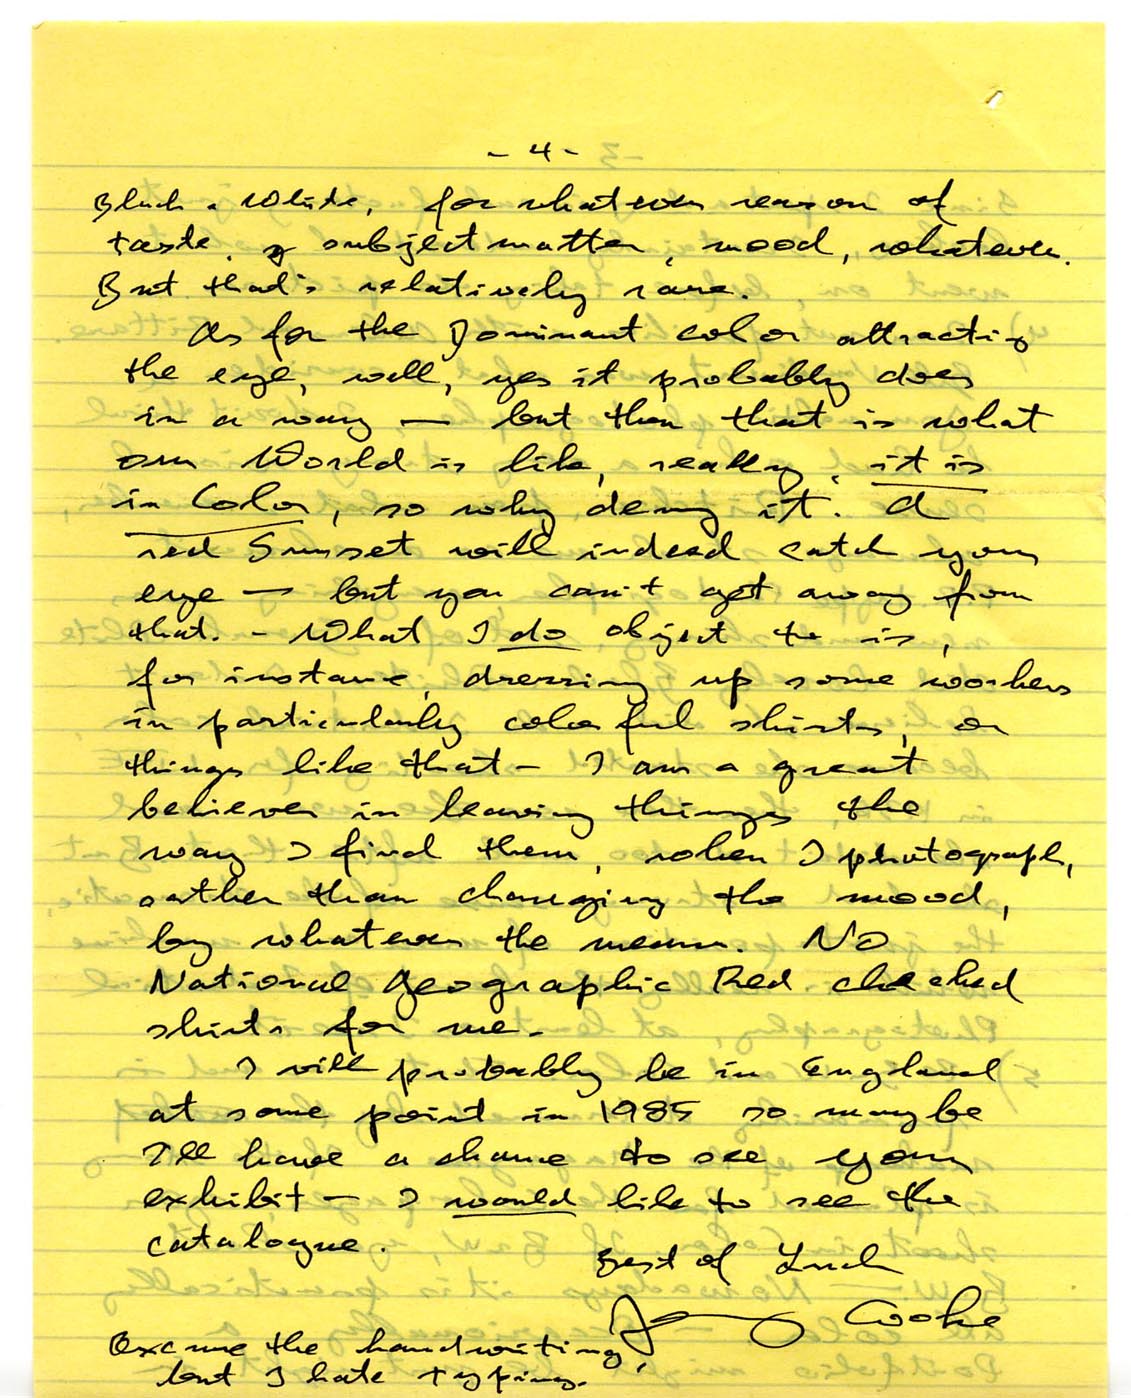 - 4 -
Black & White, for whatever reason of
taste, subject matter, mood, whatever.
But that's relatively rare.
As for the Dominant color attracting
the eye, well, yes it probably does
in a way — but then that is what
our World is like, really, it is
in Color, so why deny it. A
red Sunset will indeed catch your
eye — but you can't get away from
that. - What I do object to is,
for instance, dressing up some workers
in particularly colorful shirts, or
things like that - I am a great
believer in leaving things the
way I find them, when I photograph,
rather than changing the mood,
by whatever the means. No
National Geographic Red checked
shirts for me.
I will probably be in England
at some point in 1985 so maybe
I'll have a chance to see your
exhibit — I would like to see the
catalogue.
Best of Luck
Jerry Cooke
Excuse the handwriting,
but I hate typing.